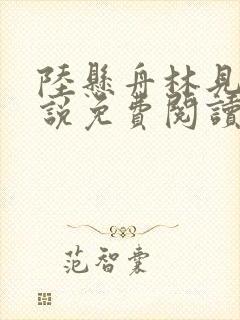 陸懸舟林見
說免費閱讀
范智囊